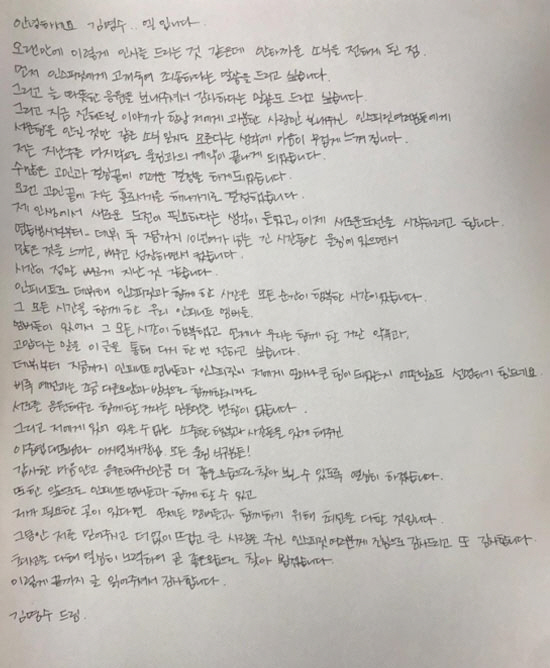 안녕하세요 김명수.. 엘 입니다.
오랜만에 이렇게 인사를 드리는 것 같은데 안타까운 소식을 전하게 된 점.
먼저 인스피릿에게 고개숙여 죄송하다는 말씀을 드리고 싶습니다.
그리고 늘 따뜻한 응원을 보내주셔서 감사하다는 말씀도 드리고 싶습니다.
그리고 지금 전해드릴 이야기가 항상 저에게 과분한 사랑만 보내주신 인스피릿여러분들에게
서운함을 안길 것만 같은 소식 일지도 모른다는 생각에 마음이 무겁게 느껴집니다.
저는 지난주를 마지막으로 울림과의 계약이 끝나게 되었습니다.
수많은 고민과 결정끝에 어려운 결정을 하게되었습니다.
오랜 고민끝에 저는 홀로서기를 해나가기로 결정했습니다.
제 인생에서 새로운 도전이 필요하다는 생각이 들었고, 이제 새로운도전을 시작하려고 합니다.
연습생시절부터- 데뷔 후 지금까지 10년여가 넘는 긴 시간동안 울림에 있으면서
많은 것을 느끼고, 배우고 성장하면서 왔습니다.
시간이 정말 빠르게 지난 것 같습니다.
인피니트로 데뷔해 인스피릿과 함께 한 시간은 모든 순간이 행복한 시간이었습니다.
그 모든 시간을 함께 한 우리 인피니트 멤버들.
멤버들이 있어서 그 모든 시간이 행복했고 언제나 우리는 함께 할 거란 약속과,
고맙다는 말을 이 글을 통해 다시 한 번 전하고 싶습니다.
데뷔부터 지금까지 인피니트 멤버들과 인스피릿이 저에게 얼마나 큰 힘이 되었는지 어떤말로도 설명하기 힘드네요
비록 예전과는 조금 다른모습과 방식으로 함께할지라도
서로를 응원해주고 함께할 거라는 믿음만은 변함이 없습니다.
그리고 저에게 잊어 있을 수 없는 소중한 행복과 시간들을 있게 해주신
이중엽 대표님과 이서영 부사장님. 모든 울림 식구분들!
감사한 마음안고 응원해주신만큼 더 좋은모습으로 찾아 뵐 수 있도록 열심히 하겠습니다.
또한 앞으로도 인피니트멤버들과 함께 할 수 있고
제가 필요한 곳이 있다면 언제든 멤버들과 함께하기 위해 최선을 다할 것입니다.
그동안 저를 믿어주시고 더 없이 뜨겁고 큰 사랑을 주신 인스피릿 여러분께 진심으로 감사드리고 또 감사합니다.
최선을 다해 열심히 노력하여 곧 좋은모습으로 찾아 뵙겠습니다.
이렇게 끝까지 글 읽어주셔서 감사합니다.
김명수 드림.